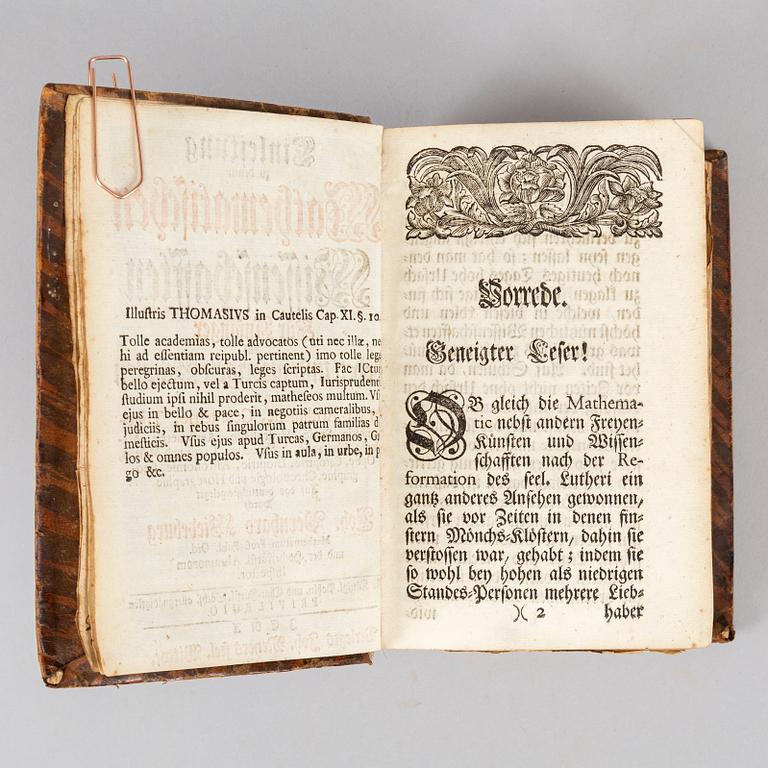 Illustris THOMASIVS in Cautelis Cap. XI. §. 10
Tolle academias, tolle advocatos (uti nec illæ, ne
hi ad essentiam reipubl. pertinent) imo tolle lege
peregrinas, obscuras, leges scriptas. Fac ICtum
bello ejectum, vel a Turcis captum, Iurisprudenti
studium ipsi nihil proderit, matheseos multum. Vs
ejus in bello & pace, in negotiis cameralibus,
judiciis, in rebus singulorum patrum familias d
mesticis. Vsus ejus apud Turcas, Germanos, G
los & omnes populos. Vsus in aula, in urbe, in p
go &c.
Vorrede.
Geneigter Leser!
OB gleich die Mathema-
tic nebst andern Freyen-
Künsten und Wissen-
schafften nach der Re-
formation des seel. Lutheri ein
gantz anderes Ansehen gewonnen,
als sie vor Zeiten in denen fin-
stern Mönchs-Klöstern, dahin sie
verstossen war, gehabt; indem sie
so wohl bey hohen als niedrigen
Standes-Personen mehrere Lieb-
)( 2 haber